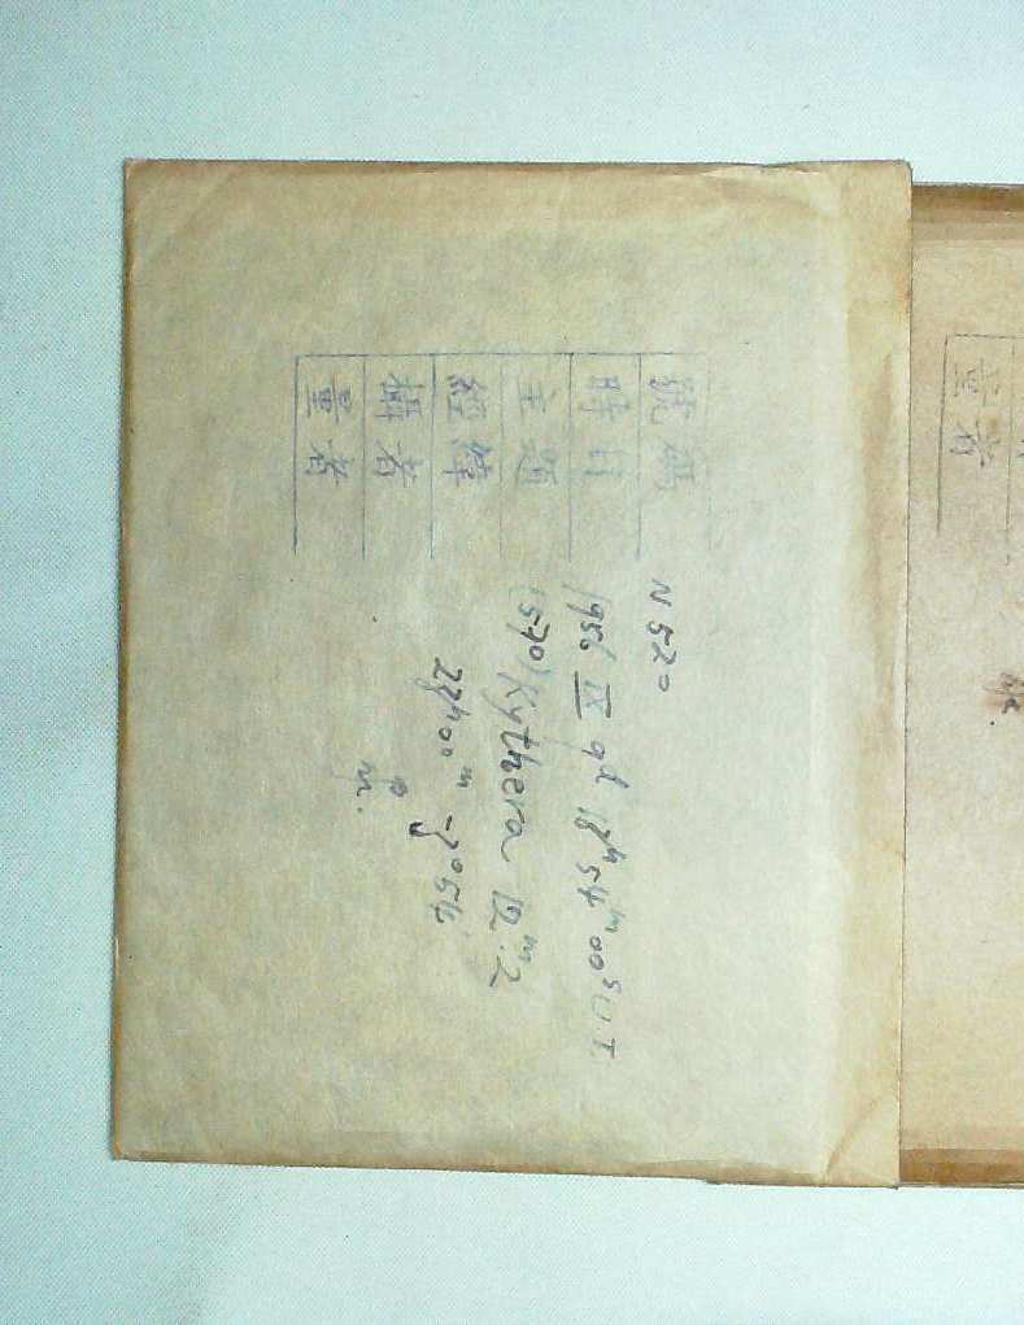 號碼 N 520
時日 1956 IX 9d 18h54m00s U.T.
主題 (570) Kythera 12m.2
經緯 23h00m -3°54'
攝者
量者
量者